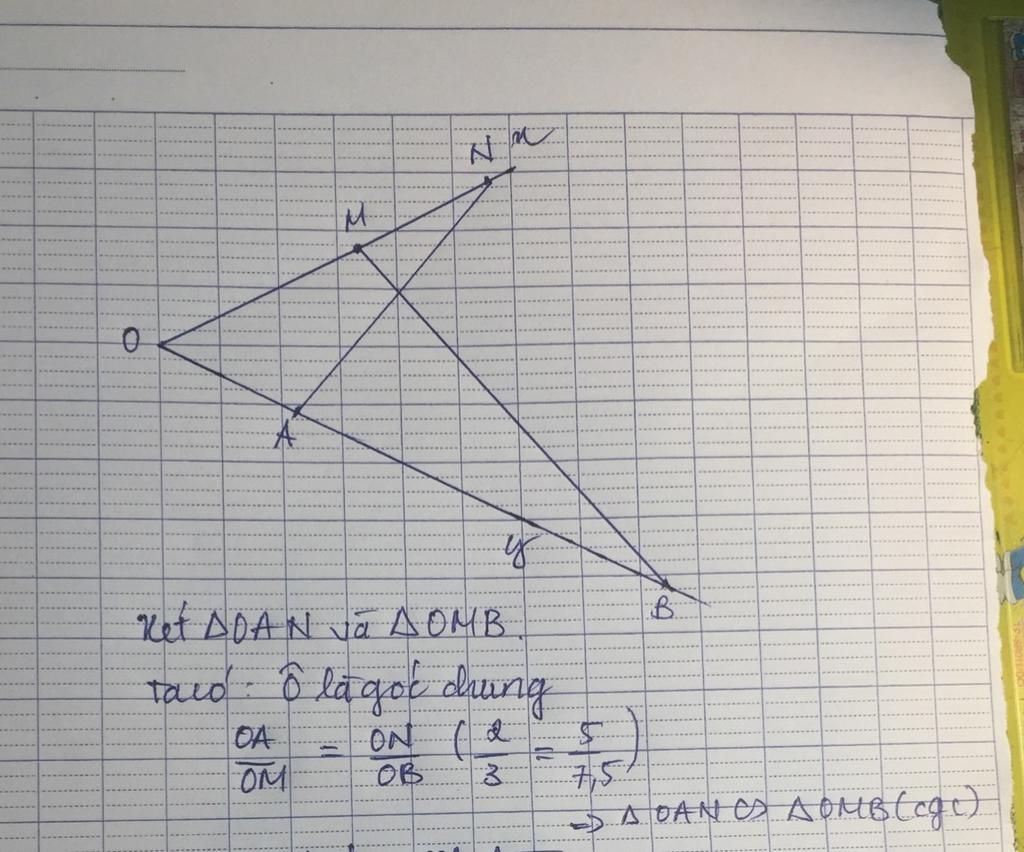 N x
M
O
A
y
B
Xét ΔOAN và ΔOMB.
ta có: Ô là góc chung
OA/OM = ON/OB (2/3 = 5/7,5)
=> ΔOAN ∽ ΔOMB (cgc)